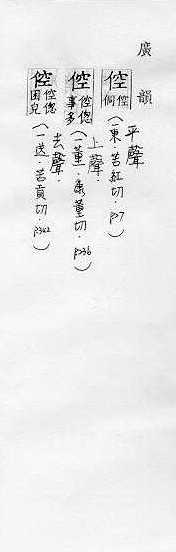 廣韻
倥 倥侗
平聲
（一東．苦紅切．P27）
倥 倥偬事多
上聲．
（一董．康董切．P236）
倥 倥偬困皃
去聲．
（一送．苦貢切．P342）